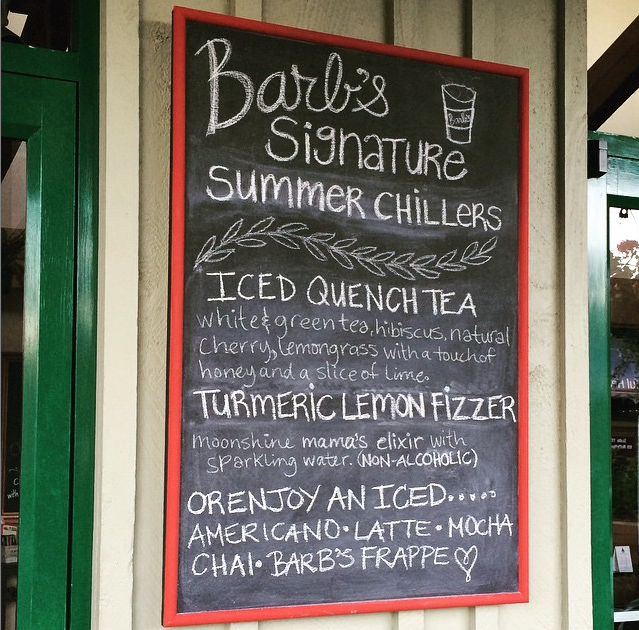 Barb's
Signature
Summer Chillers
Barb's
ICED QUENCH TEA
white & green tea, hibiscus, natural
cherry, lemongrass with a touch of
honey and a slice of lime.
TURMERIC LEMON FIZZER
moonshine mama's elixir with
sparkling water. (NON-ALCOHOLIC)
OR ENJOY AN ICED.....
AMERICANO • LATTE • MOCHA
CHAI • BARB'S FRAPPE ♡